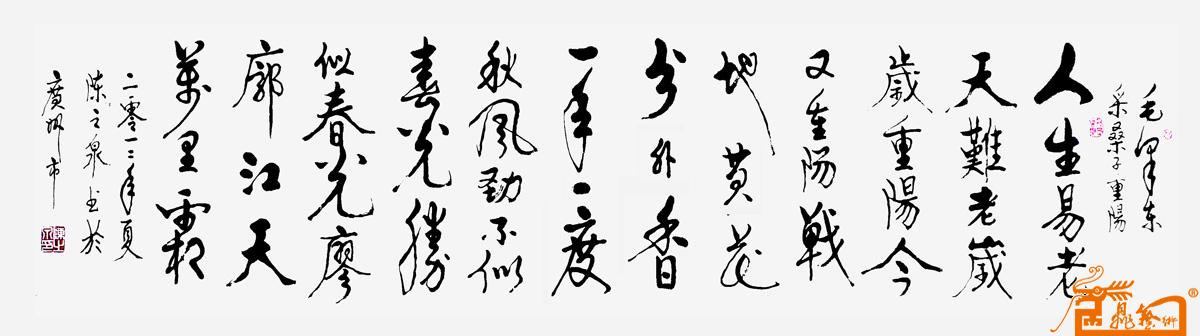 毛澤东
采桑子重陽
人生易老
天難老歲
歲重陽今
又重陽戰
地黄花
分外香
一年一度
秋風勁不似
春光勝
似春光廖
廓江天
萬里霜
二零一二年夏
陳之泉书於
廣州市